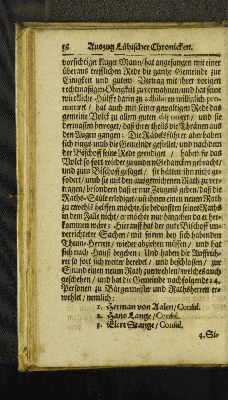 56 Auszug Lübischer Chronicken.
vorsichtiger kluger Mann/ hat angefangen mit einer
überaus trefflichen Rede die gantze Gemeinde zur
Einigkeit und gutem Vertrag mit ihrer vorigen
rechtmässigen Obrigkeit zu vermahnen/ und hat seine
würckliche Hülffe darin zu adhibiren williglich pro-
mittiret / hat auch mit seiner gewaltigen Rede das
gemeine Volck zu allem guten disponirt / und sie
dermassen beweget/ daß ihr theils die Thränen aus
den Augen gangen: Die Rädelsführer aber haben
sich rings umb die Gemeinde gestellet / und nachdem
der Bischoff seine Rede geendiget / haben sie das
Volck so fort wieder zu andern Gedancken gebracht/
und zum Bischoff gesaget / sie hätten ihn nicht ge-
fodert/ umb sie mit den ausgewichenen Rath zu ver-
tragen/ besondern daß er nur Zeugniß geben/ daß die
Raths-Säule erlediget/ un ihnen einen neuen Rath
zu erwehlē helffen möchte/ sie bedurfften seines Raths
in dem Falle nicht/ er möchte nur hingehen da er her-
kommen wäre; Hierauff hat der gute Bischoff unver-
richteter Sachen / mit seinen bey sich habenden
Thum-Herren / wieder abziehen müssen / und hat
sich nach Hause begeben: Und haben die Auffrüh-
rer so fort sich weiter beredet / und beschlossen / zur
Stund einen neuen Rath zuerwehlen/ welches auch
geschehen / und hat die Gemeinde nachfolgende 24.
Personen zu Bürgermeister und Rathsherren er-
wehlet / nemlich:
1. Herman von Aalen/ Consul.
2. Hans Lange/ Consul.
3. Elert Stange/ Consul.